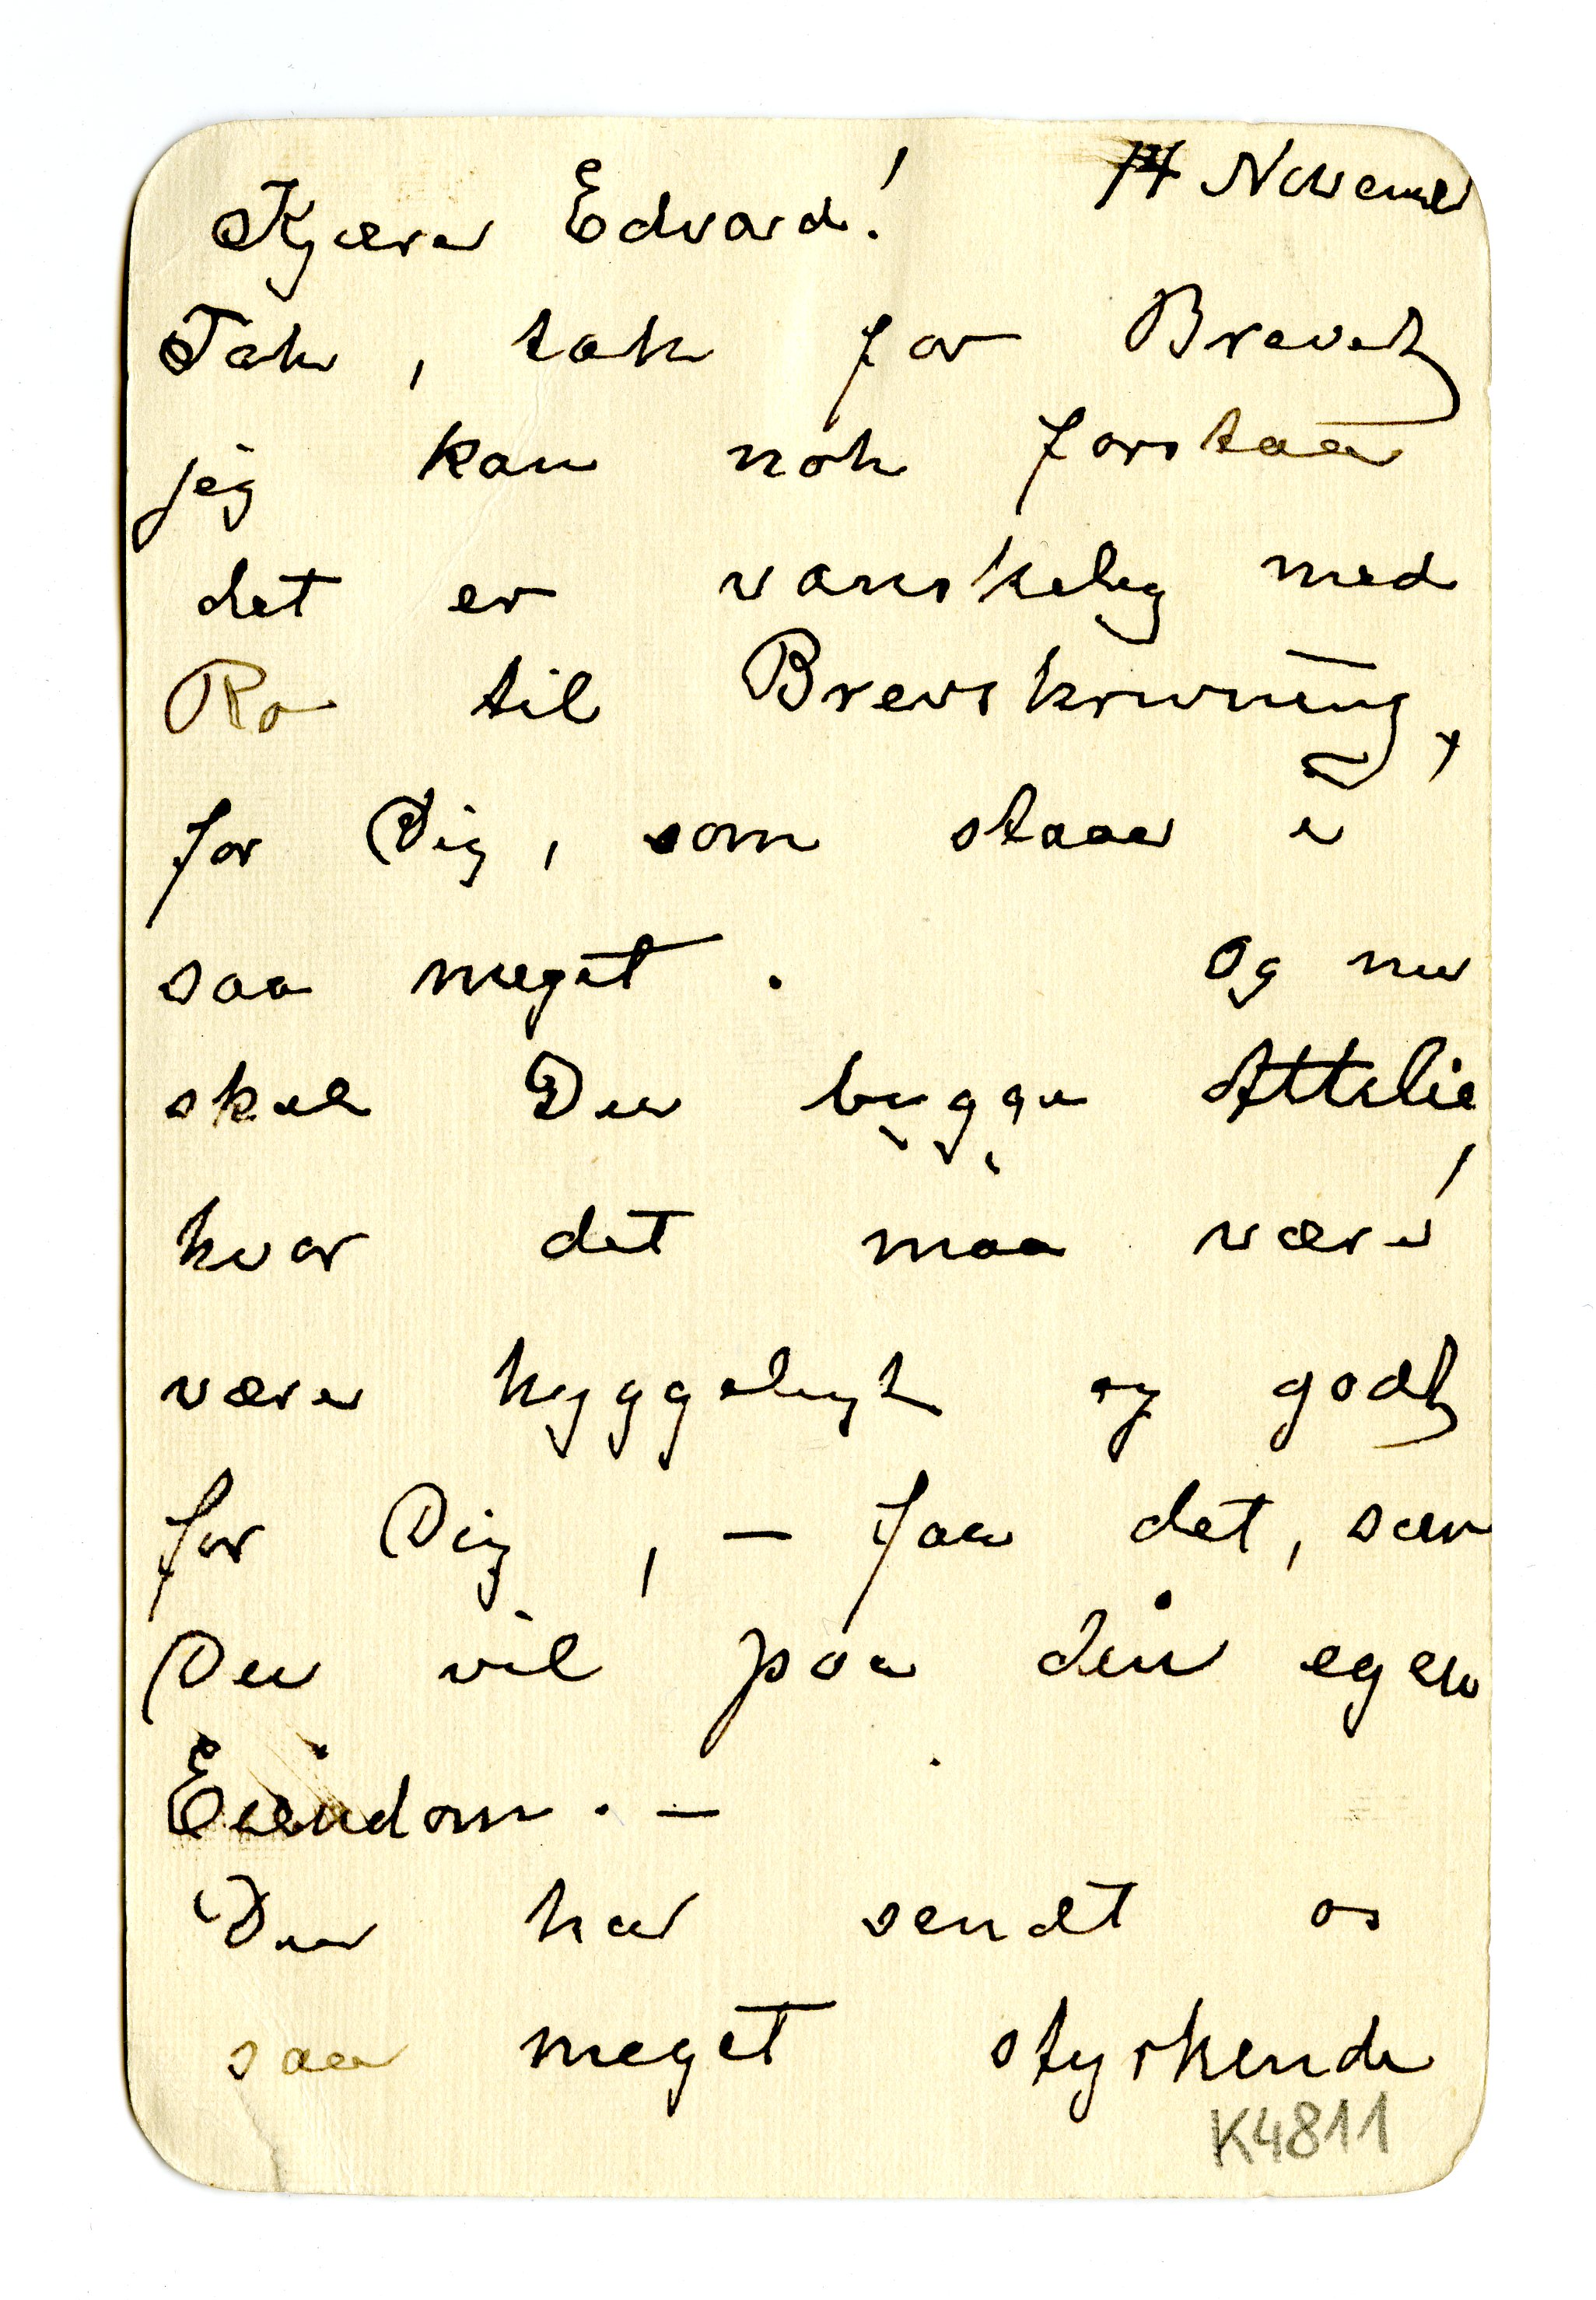 14 November
Kjære Edvard!
Tak, tak for Brevet
jeg kan nok forstaa
det er vanskelig med
Ro til Brevskrivning,
for Dig, som staar i
saa meget. Og nu
skal Du bygge Attelie,
hvor det maa være
være hyggeligt og godt
for Dig, – faa det, som
Du vil paa din egen
Eiendom. –
Du har sendt os
saa meget styrkende
K4811